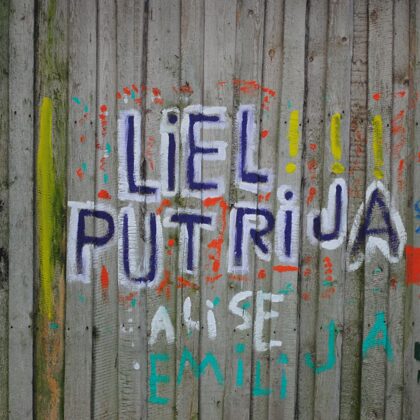 LiEL!!!
PUTRiJA
ALiSE
EMiLiJA